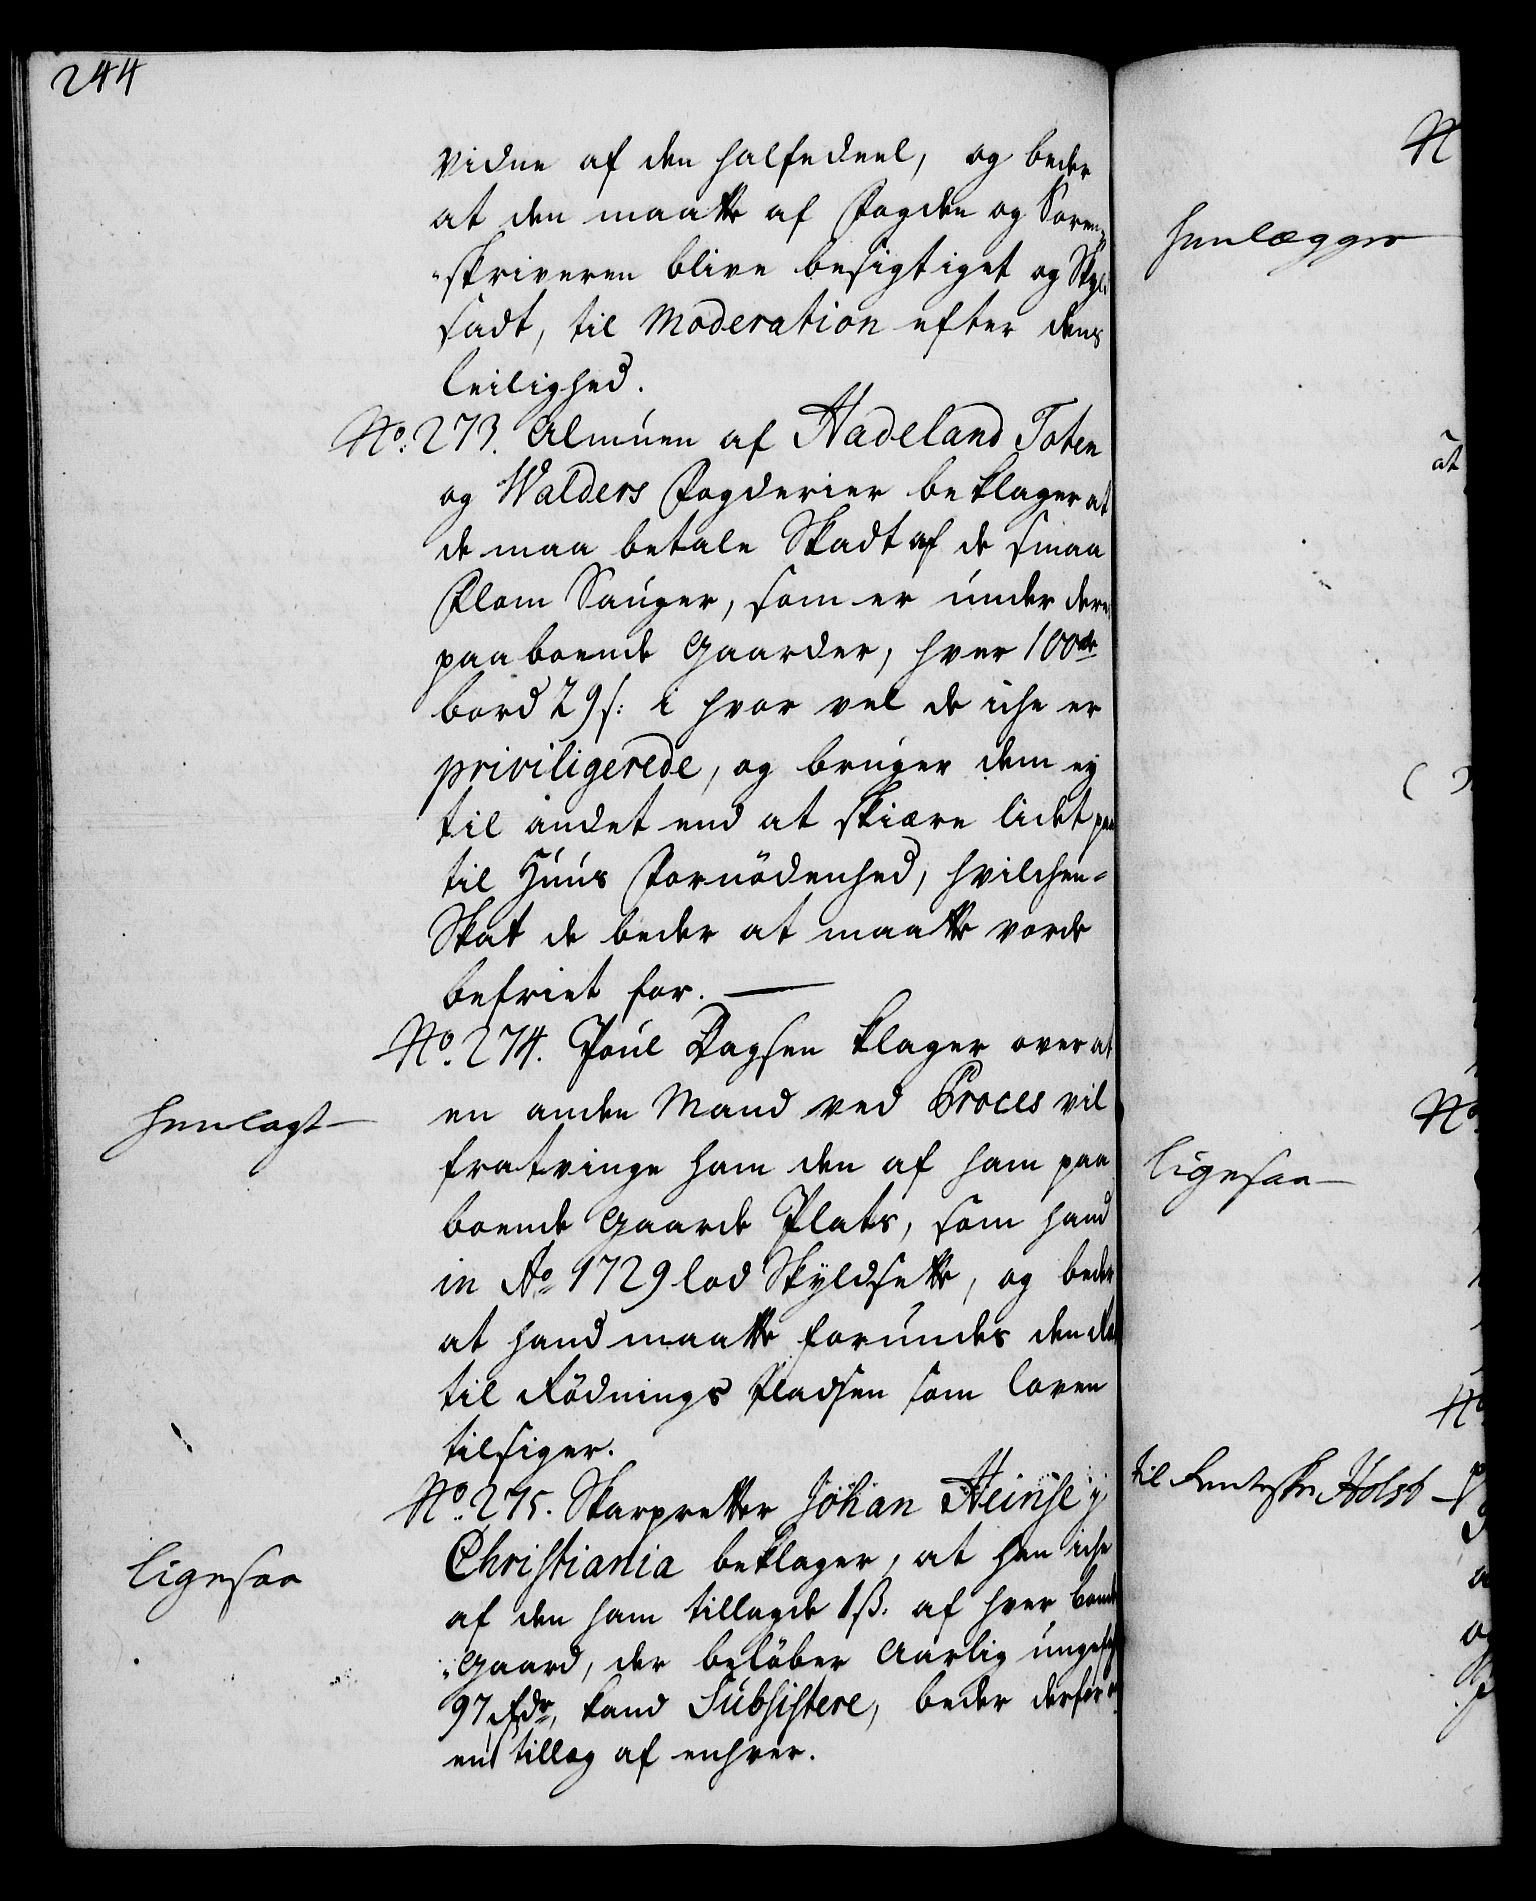 244
vidne af den halfedeel, og beder
at den maatte af Fogden og Soren-
"skriveren blive besigtiget og Skyld
sadt, til Moderation efter dens
leilighed.
No. 273. Almuen af Hadeland Toten
og Walders Fogderier beklager at
de maa betale Skadt af de smaa
Flom Sauger, som er under deres
paaboende Gaarder, hver 100de
bord 29 s: i hvor vel de iche er
priviligerede, og bruger dem ey
til andet end at skiære lidet paa
til Huus Fornödenhed, hvilchen-
Skat de beder at maatte vorde
befriet for. —
No. 274. Poul Dagsen klager over at
en anden Mand ved Proces vil
fratvinge ham den af ham paa
boende Gaarde Plats, som hand
in Ao 1729 lod Skyldsette, og beder
at hand maatte forundes den Ræt
til Rödnings Pladsen som loven
tilsiger.
No. 275. Skarpretter Johan Heinse j
Christiania beklager, at han iche
af den ham tillagde 1 ß. af hver bonde
"Gaard, der belöber Aarlig ungefehr
97 Rdr, kand Subsistere, beder derfor om
en tillæg af enhver.
henlagt
ligesaa
henlægges
ligesaa
til Renteskr. Holst